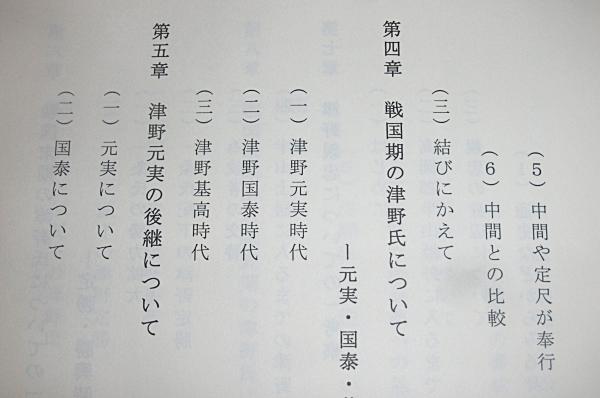 (5)中間や定尺が奉行
(6)中間との比較
(三)結びにかえて
第四章 戦国期の津野氏について
ー元実・国泰・
(一)津野元実時代
(二)津野国泰時代
(三)津野基高時代
第五章 津野元実の後継について
(一)元実について
(二)国泰について